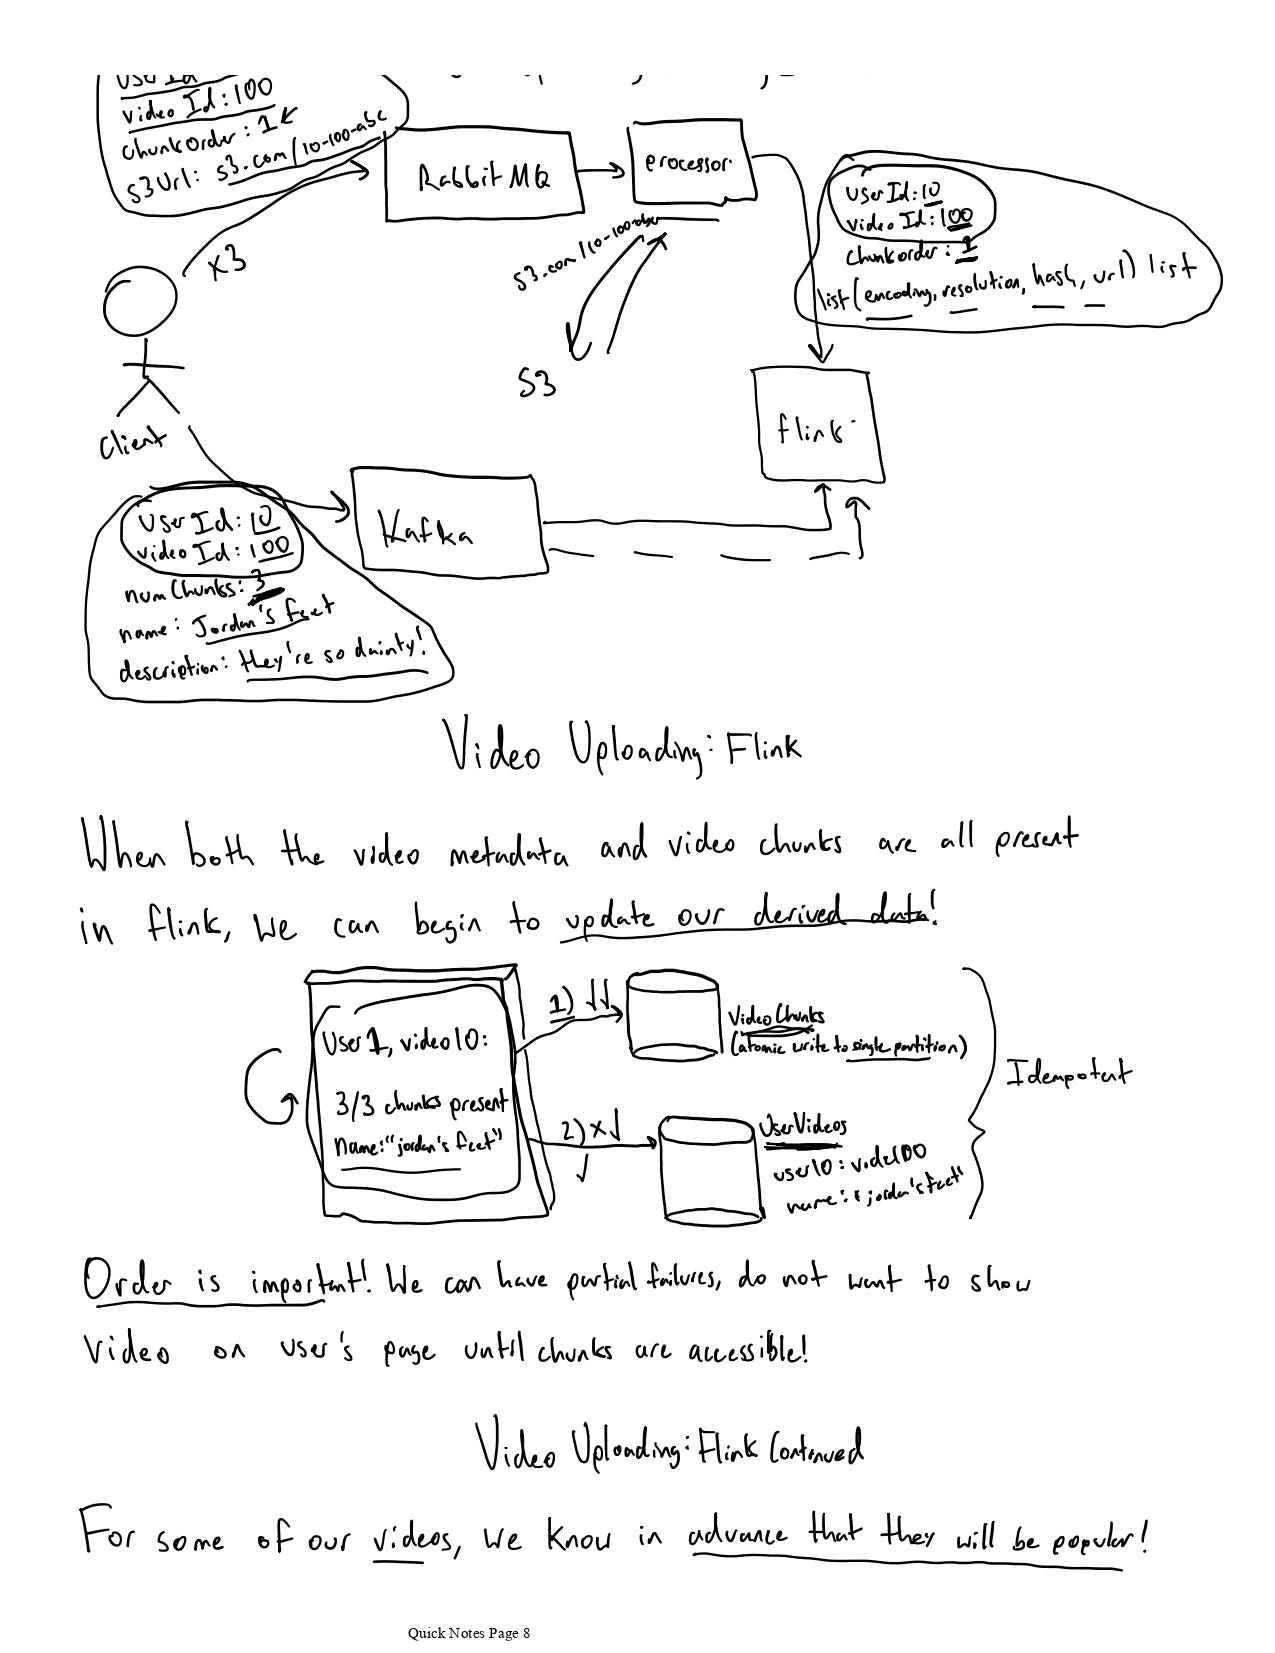 userId
videoId:100
chunkOrder: 1
s3Url: s3.com/10-100-abc
RabbitMQ
processor
userId:10
videoId:100
chunkorder: 1
list(encoding, resolution, hash, url) list
x3
s3.com/10-100-abc
S3
Client
flink
userId:10
videoId:100
numChunks:3
name: Jordan's feet
description: they're so dainty!
Kafka
Video Uploading: Flink
When both the video metadata and video chunks are all present
in flink, we can begin to update our derived data!
User 1, video 10:
3/3 chunks present
name:"jordan's feet"
1)
VideoChunks
(atomic write to single partition)
2) x
UserVideos
user10: vide100
name: "jordan's feet"
Idempotent
Order is important! We can have partial failures, do not want to show
video on user's page until chunks are accessible!
Video Uploading: Flink Continued
For some of our videos, we know in advance that they will be popular!
Quick Notes Page 8